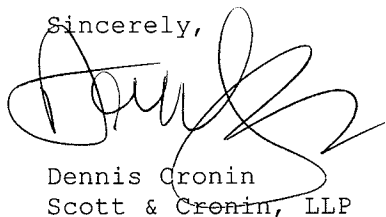 Sincerely,
Dennis Cronin
Scott & Cronin, LLP